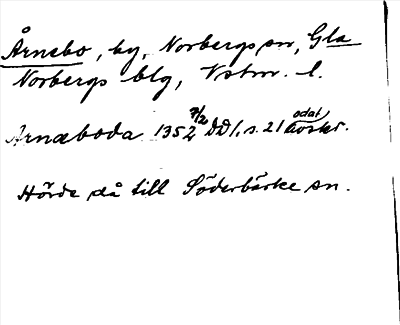 Årnebo, by, Norbergs sn, Gla
Norbergs blg, Vstm. l.
Arnæboda 1352 7/2 DD 1, s. 21 odat avskr.
Hörde då till Söderbärke sn.